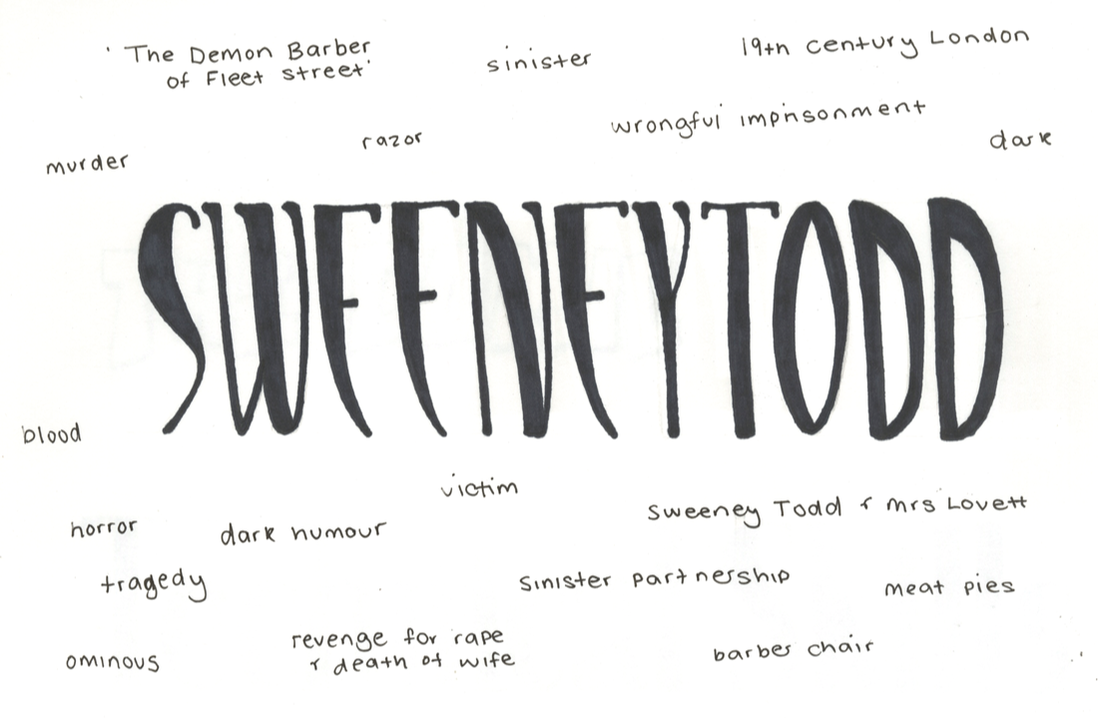 'The Demon Barber
of Fleet street'
sinister
19th century London
wrongful imprisonment
razor
dark
murder
SWEENEYTODD
blood
victim
Sweeney Todd & Mrs Lovett
horror
dark humour
tragedy
sinister partnership
meat pies
revenge for rape
& death of wife
barber chair
ominous